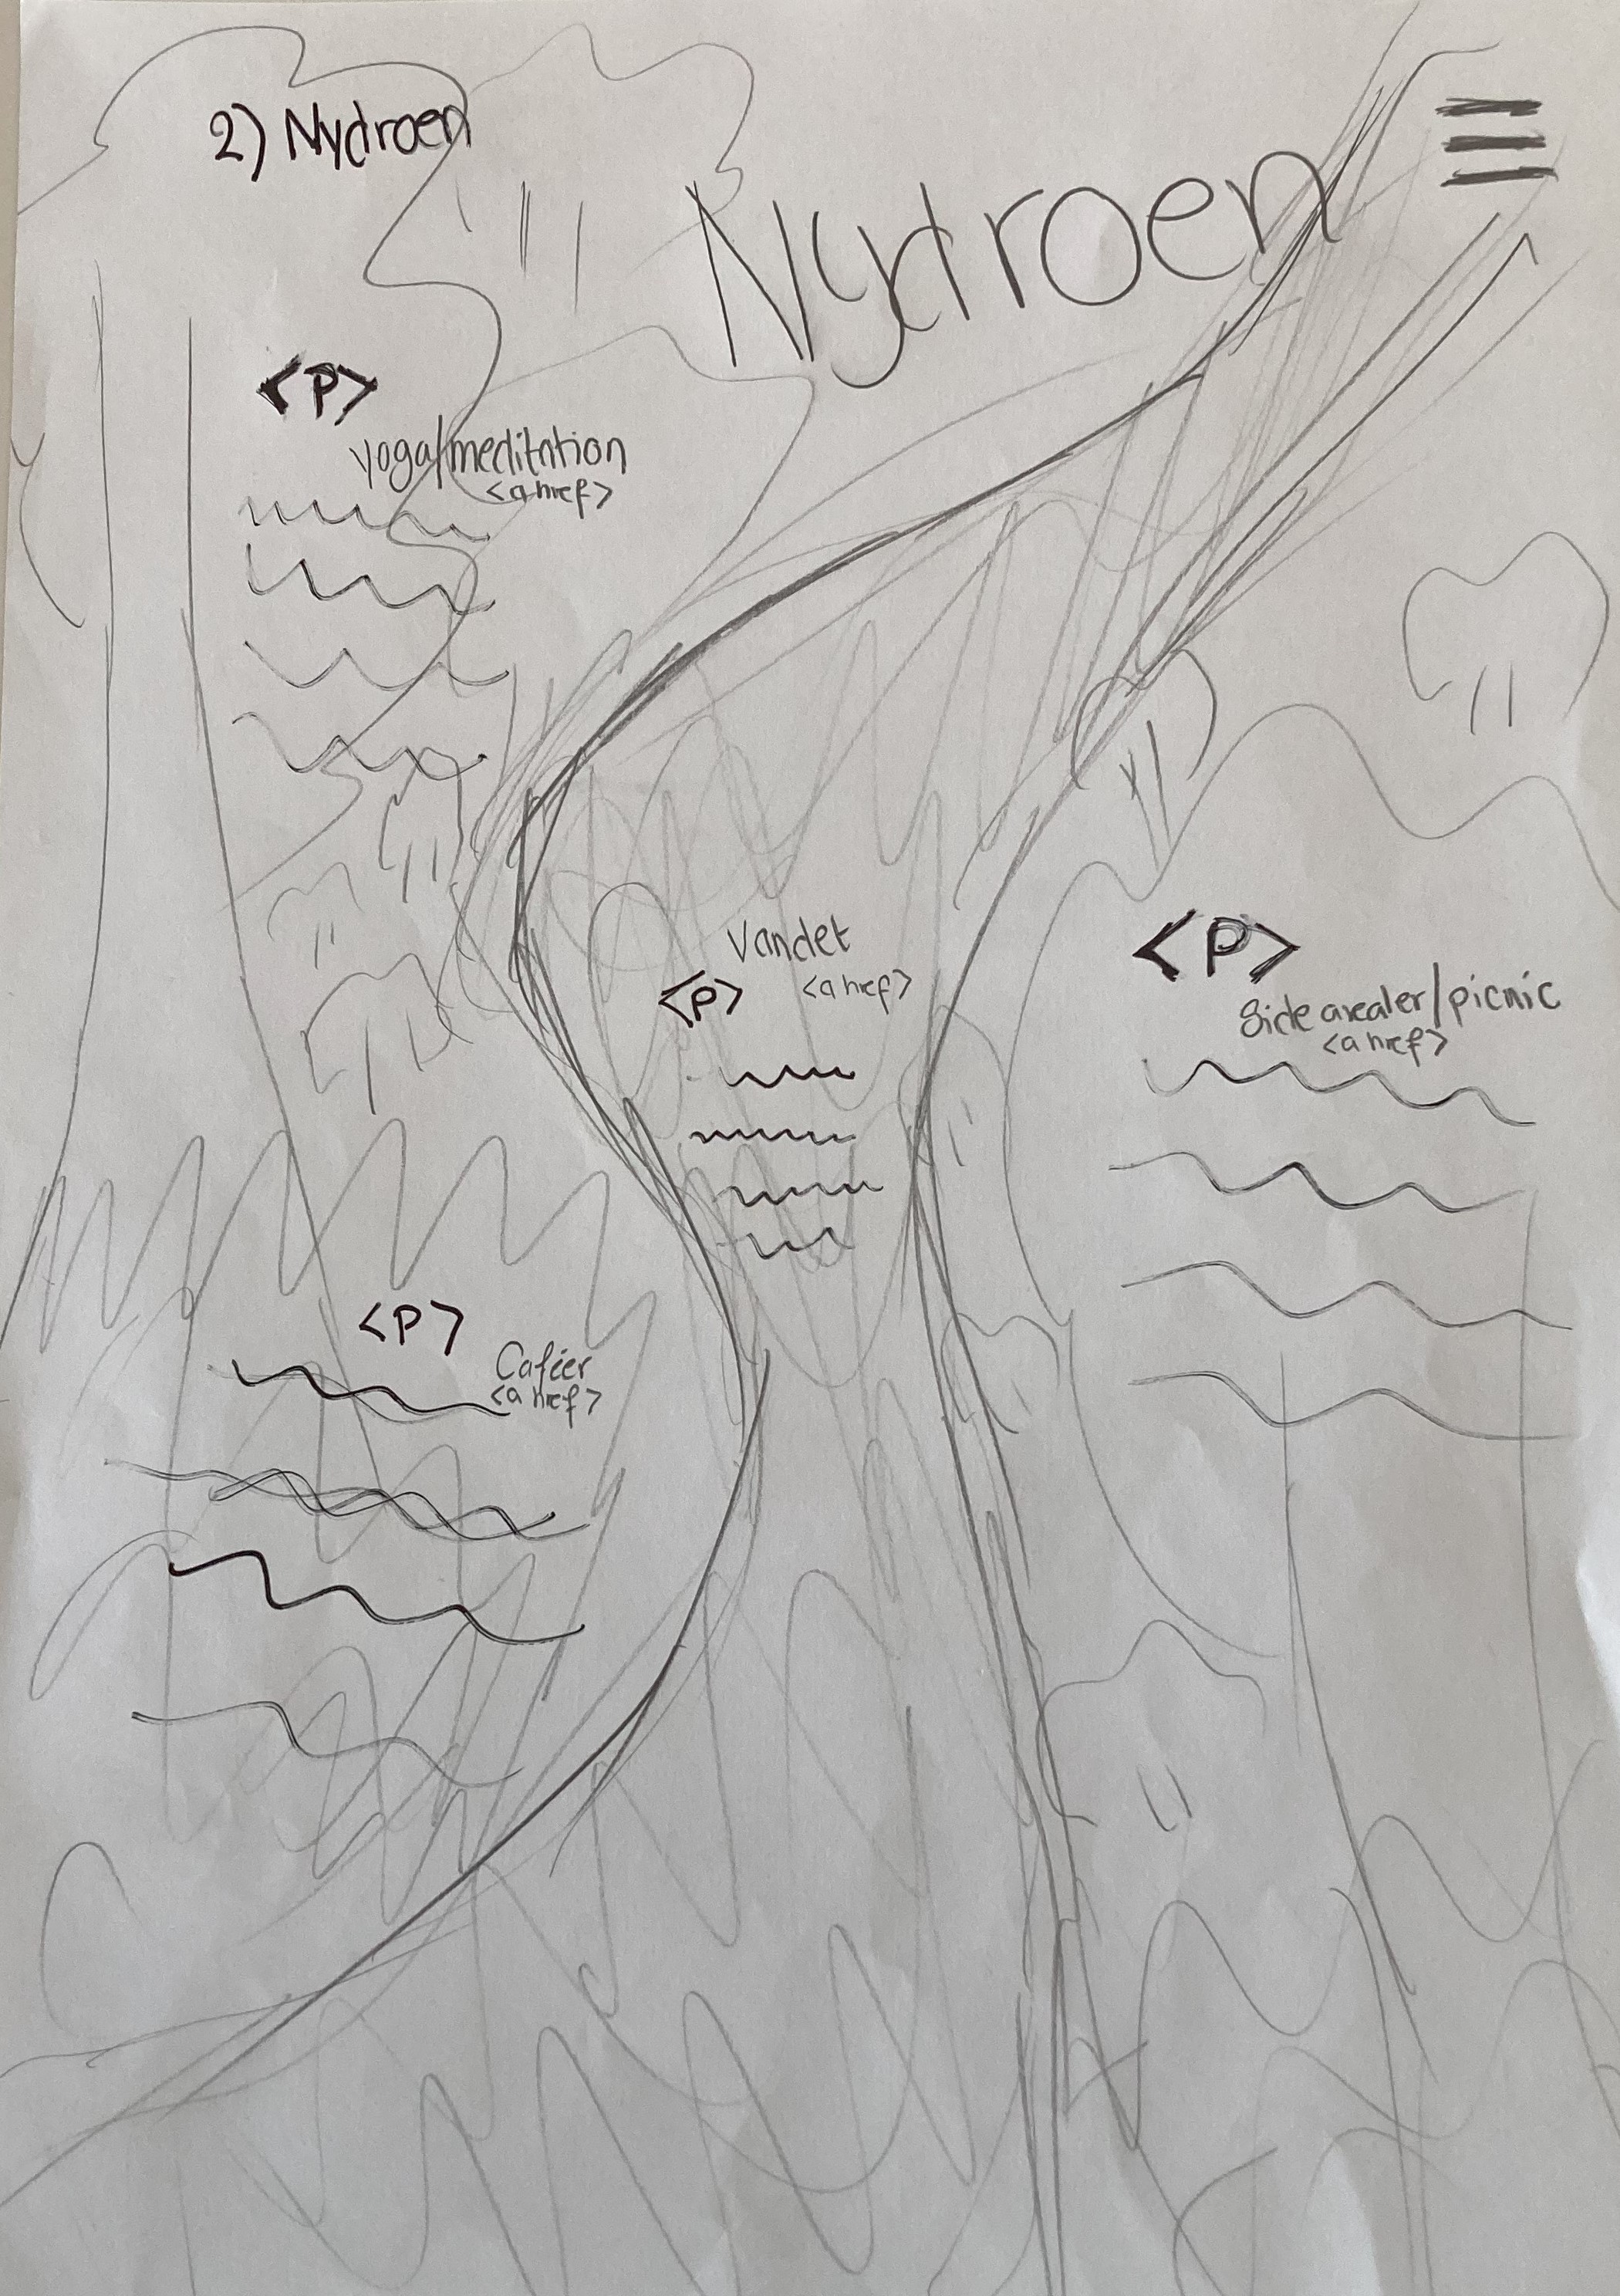 2) Nydroen
Nydroen
<P>
yoga/meditation
<a href>
Vandet
<P> <a href>
<P>
Side arealer/picnic
<a href>
<P>
Caféer
<a href>